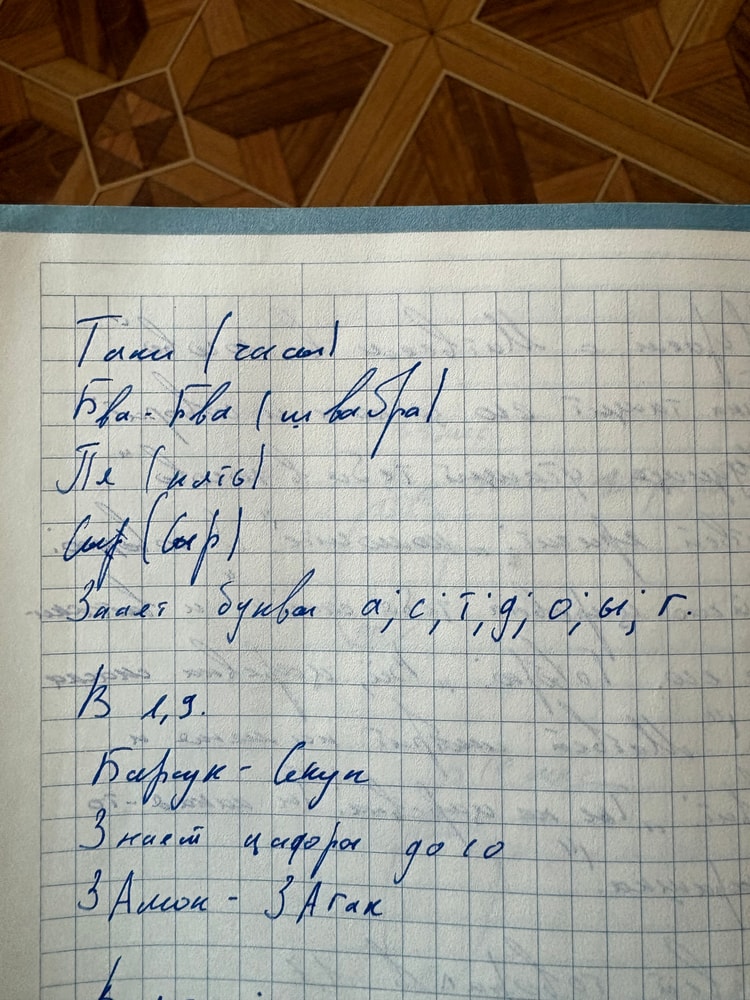 Таки (часы)
Бва-Бва (швабра)
Пя (пять)
Сыр (Сыр)
Знает буквы а; с; т; д; о; ы; г.
В 1,9.
Барсук - Скуп
Знает цифры до 10
ЗАмок - ЗАгак